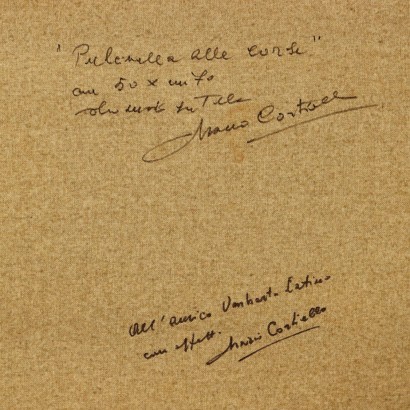 "Pulcinella alle corse"
cm 50 x cm 70
olio su tela
Mario Cortiello
All'amico Umberto Latino
con affetto.
Mario Cortiello